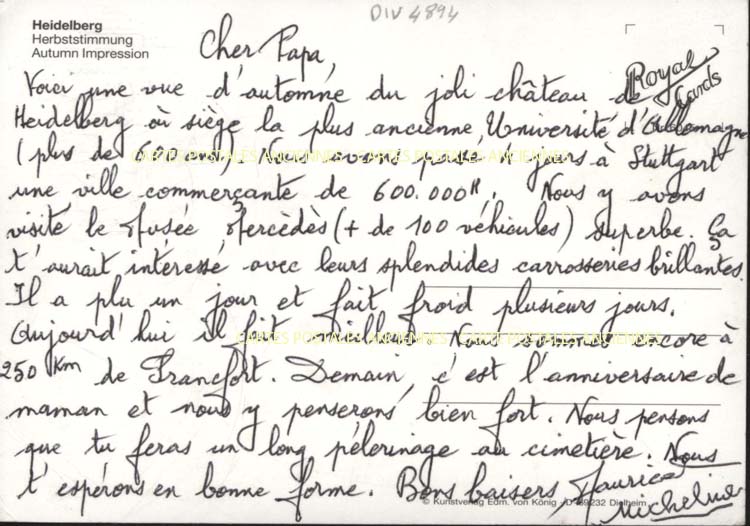 DIV 4894
Heidelberg
Herbststimmung
Autumn Impression
Royal Cards
Cher Papa,
Voici une vue d'automne du joli château de
Heidelberg où siège la plus ancienne Université d'Allemagne
(plus de 600 ans). Nous avons passé 4 jours à Stuttgart
une ville commerçante de 600.000 H. Nous y avons
visité le Musée Mercédès (+ de 100 véhicules) superbe. Ça
t'aurait intéressé avec leurs splendides carrosseries brillantes.
Il a plu un jour et fait froid plusieurs jours.
Aujourd'hui il fait meilleur. Nous sommes encore à
250 Km de Francfort. Demain, c'est l'anniversaire de
maman et nous y penserons bien fort. Nous pensons
que tu feras un long pélerinage au cimetière. Nous
t'espérons en bonne forme. Bons baisers Maurice
Micheline
CARTES POSTALES ANCIENNES CARTES POSTALES ANCIENNES
CARTES POSTALES ANCIENNES CARTES POSTALES ANCIENNES
© Kunstverlag Edm. von König · D-69232 Dielheim